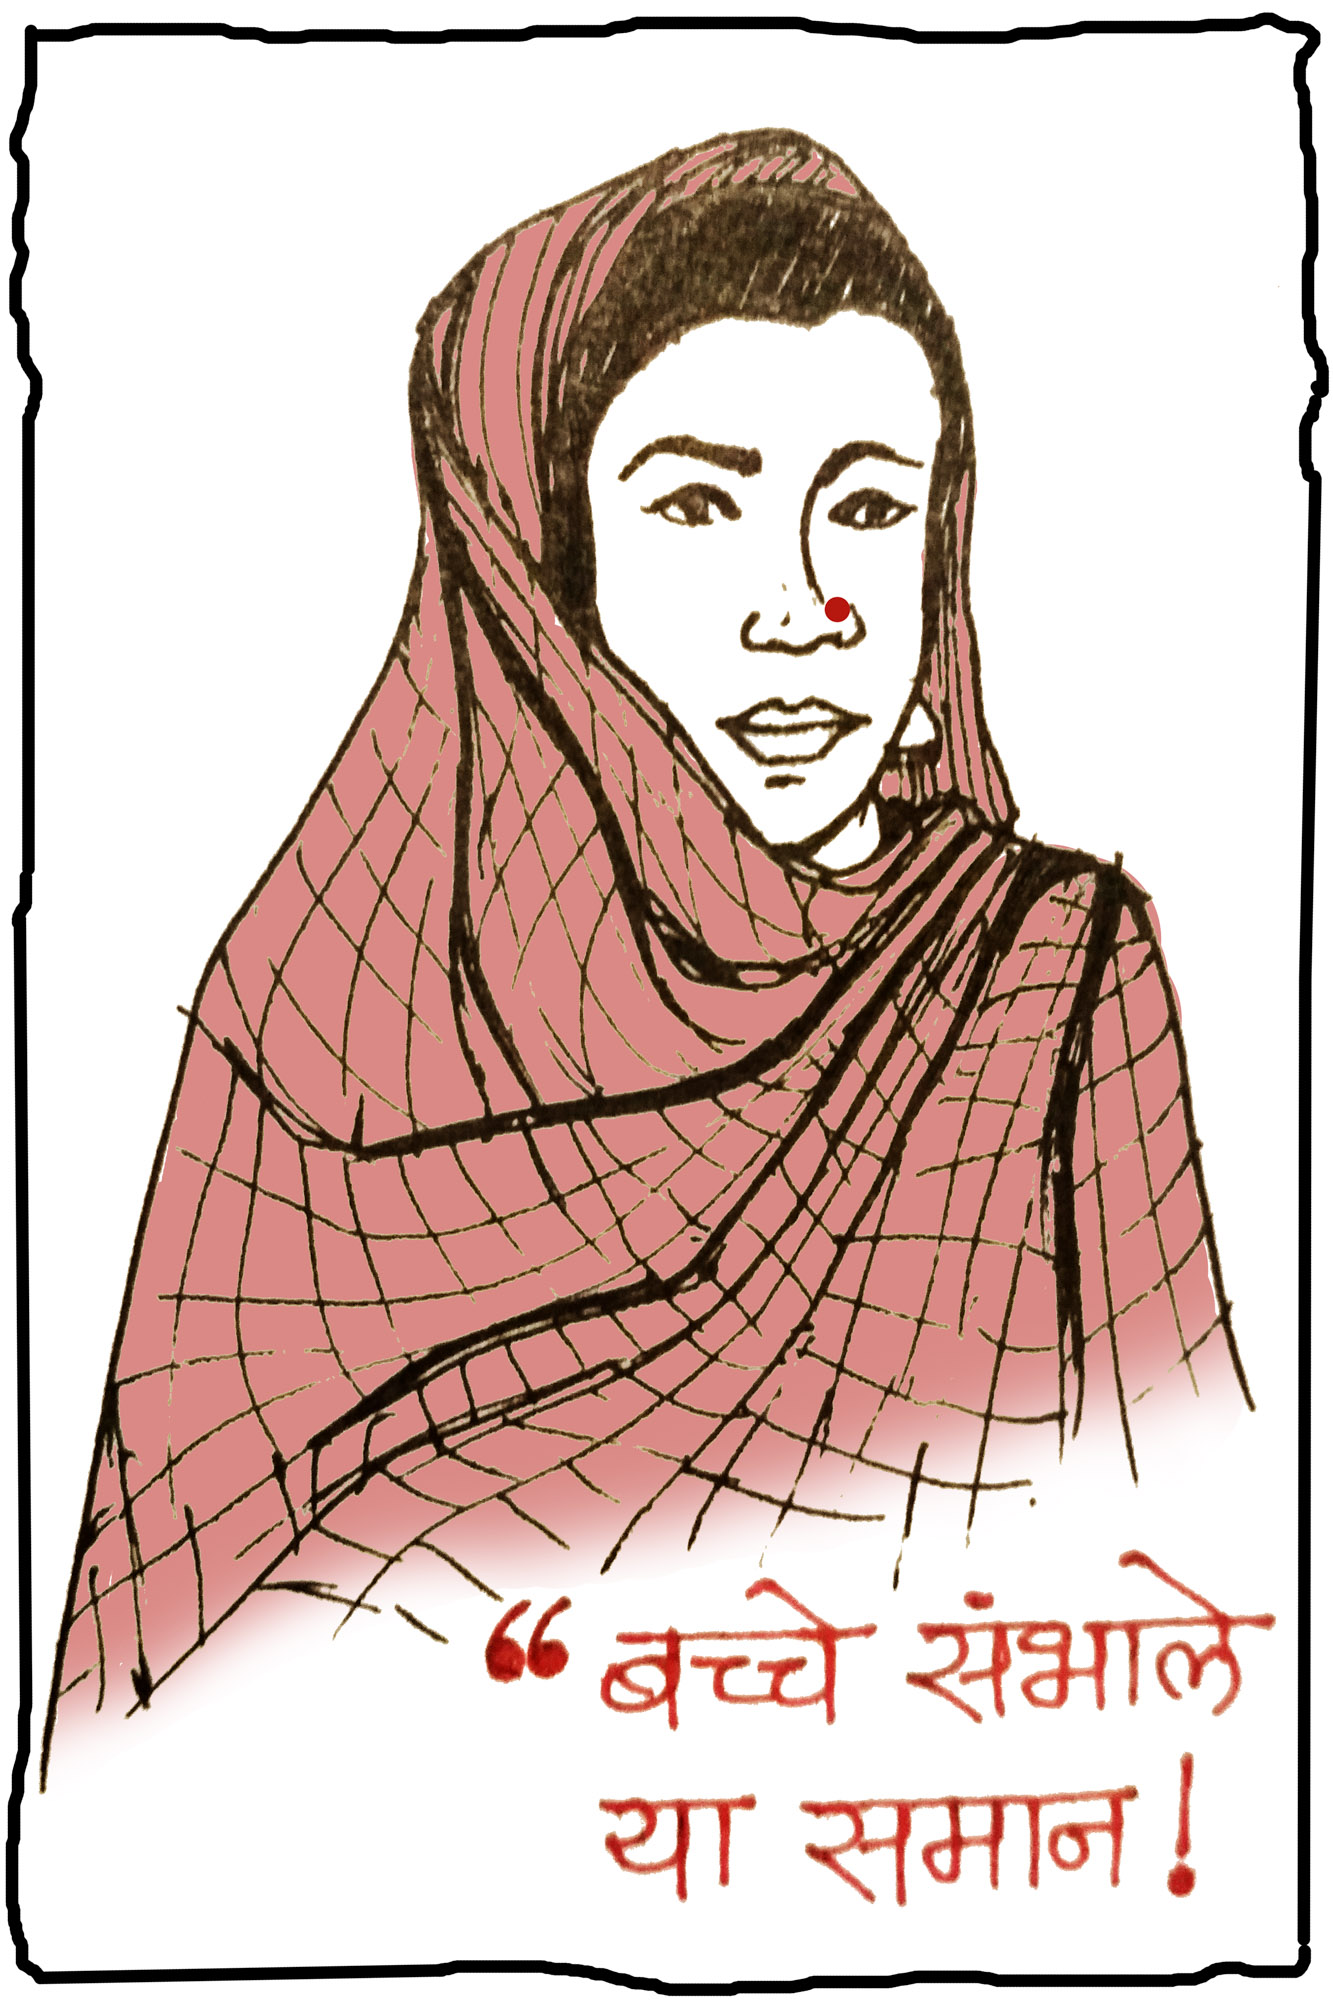 “ बच्चे संभाले
या समान !